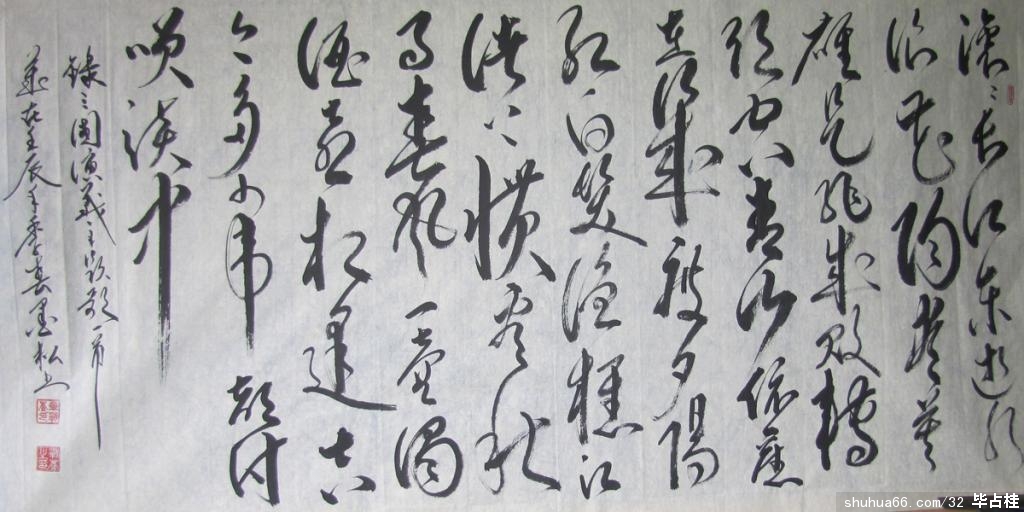 滚滚长江东逝水
浪花陶尽英
雄是非成败轉
头空青山依舊
在 度夕陽
红白髮渔樵江
渚上惯看秋
月春风一壶濁
酒喜相逢古
今多少事都付
笑谈中
錄三國演義主题歌一首
歲在壬辰年季春墨松书
shuhua66.com/32 毕占桂